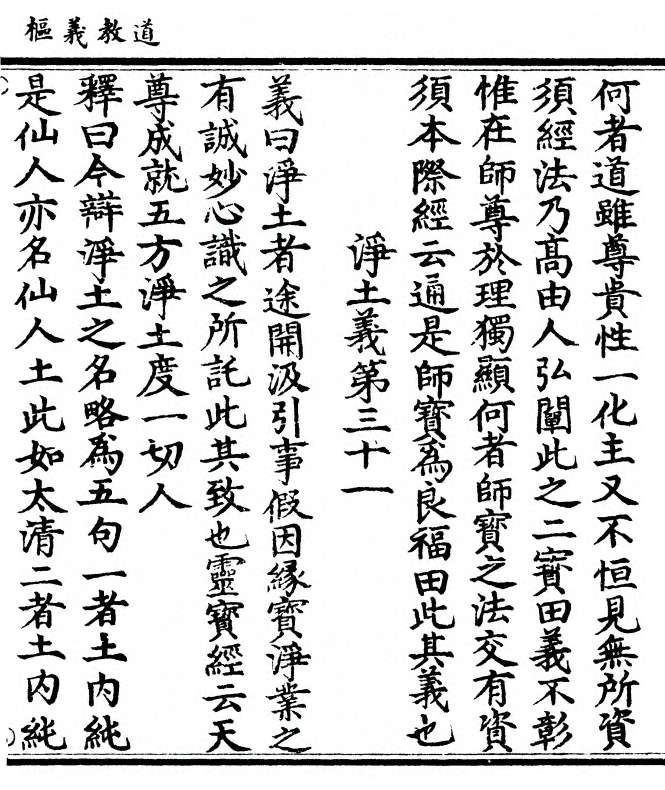 道教義樞
何者道雖尊貴性一化主又不恒見無所資
須經法乃髙由人弘闡此之二寳田義不彰
惟在師尊於理獨顯何者師寳之法交有資
須本際經云逼是師寳爲良福田此其義也
淨土義第三十一
義曰淨土者途開汲引事假因縁寳淨業之
有誠妙心識之所託此其致也靈寳經云天
尊成就五方淨土度一切人
釋曰今辯淨土之名略爲五句一者土内純
是仙人亦名仙人土此如太清二者土内純